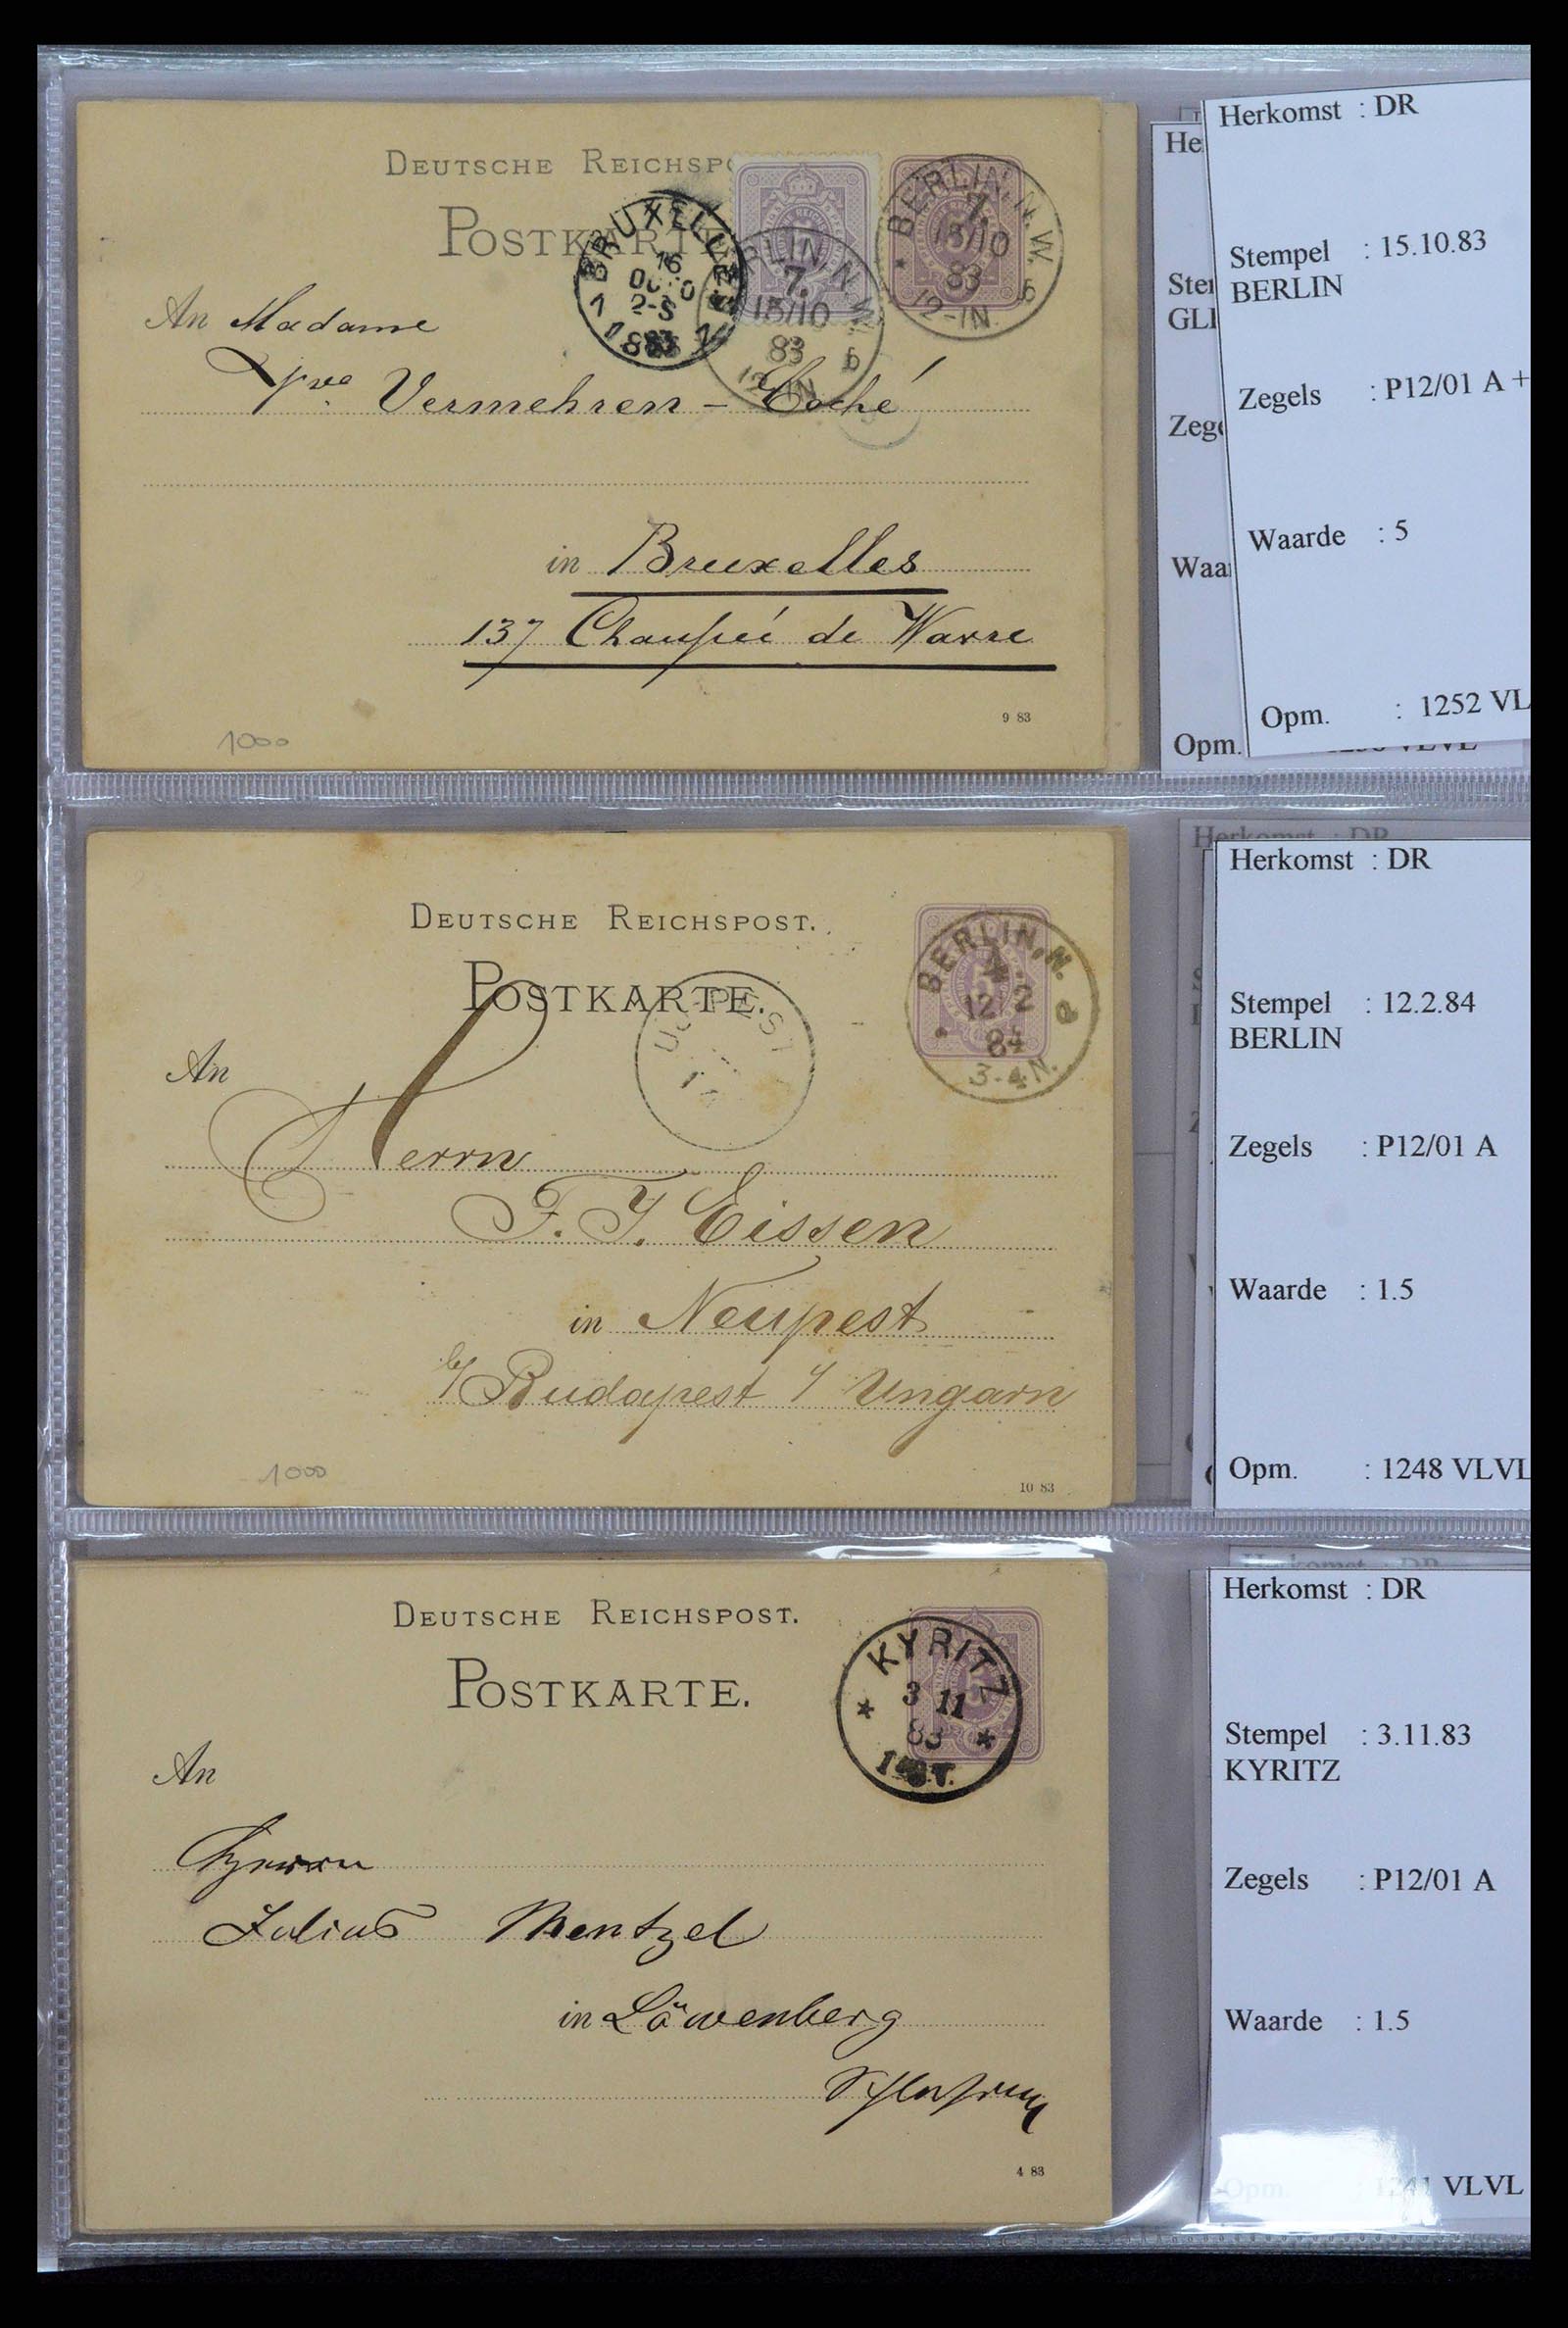 DEUTSCHE REICHSP
POSTKARTE
BRUXELLES
16
2-S
1883
BERLIN N.W.
7.
15/10
83
12-1N.
b
BERLIN, N.W.
7.
15/10
83
12-1N.
b
An Madame
Vve Vermehren - Coché
in Bruxelles
137 Chaussée de Wavre
9 83
1000
He
Ste
GL
Zeg
Waa
Opm.
Herkomst : DR
Stempel : 15.10.83
BERLIN
Zegels : P12/01 A +
Waarde : 5
Opm. : 1252 VL
DEUTSCHE REICHSPOST.
POSTKARTE.
UJ-PEST
BERLIN, N.
12/2
84
3-4N.
An
Herrn
F. J. Eissen
in Neupest
b/ Budapest / Ungarn
10 83
1000
Herkomst : DR
Herkomst : DR
Stempel : 12.2.84
BERLIN
Zegels : P12/01 A
Waarde : 1.5
Opm. : 1248 VLVL
DEUTSCHE REICHSPOST.
POSTKARTE.
KYRITZ
3 11
83
An
Herrn
Julius Mentzel
in Löwenberg
Schlesien
4 83
Herkomst : DR
Herkomst : DR
Stempel : 3.11.83
KYRITZ
Zegels : P12/01 A
Waarde : 1.5
Opm. : 1241 VLVL